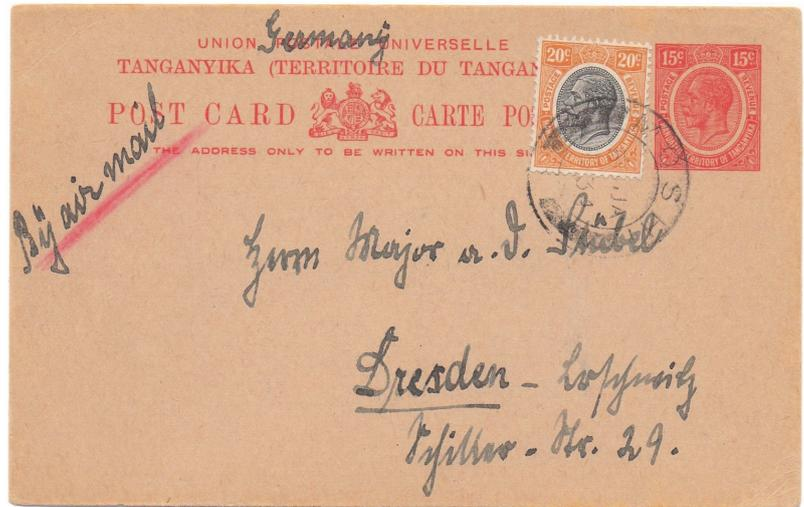 Germany
UNION POSTALE UNIVERSELLE
TANGANYIKA (TERRITOIRE DU TANGAN
POST CARD CARTE PO
THE ADDRESS ONLY TO BE WRITTEN ON THIS SI
20c 20c
POSTAGE REVENUE
TERRITORY OF TANGANYIKA
15c 15c
POSTAGE REVENUE
TERRITORY OF TANGANYIKA
By air mail
Herrn Major a. D. Stübel
Dresden - Loschwitz
Schiller - Str. 29.